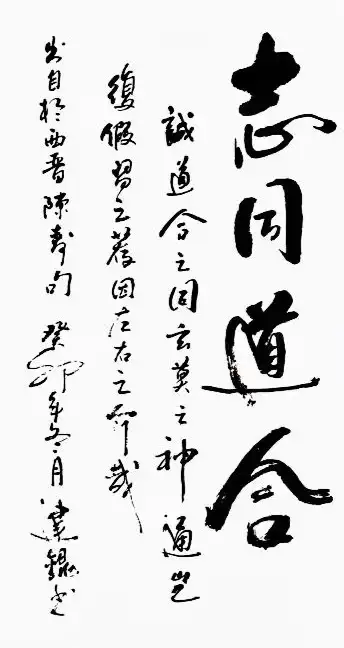 志同道合
誠道合之同玄莫之神通豈
復假習之蓡因左右之介哉
出自於西晉陳壽句 癸卯年冬月 建鑼书